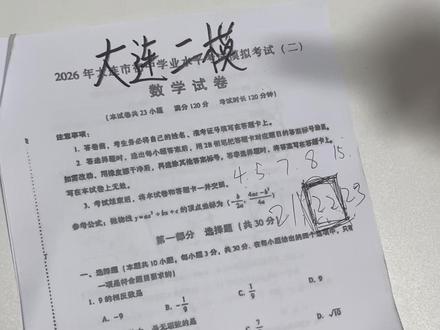 2026年大连市初中学业水平考试模拟考试（二）
大连二模
数学试卷
（本试卷共23小题 满分120分 考试时长120分钟）
注意事项：
1. 答卷前，考生务必将自己的姓名、准考证号填写在答题卡上。
2. 答选择题时，选出每小题答案后，用2B铅笔把答题卡对应题目的答案标号涂黑。
如需改动，用橡皮擦干净后，再选涂其他答案标号。答非选择题时，将答案写在答题卡上。
写在本试卷上无效。
3. 考试结束后，将本试卷和答题卡一并交回。
4 5 7 8 15
参考公式：抛物线 y=ax²+bx+c 的顶点坐标为 (-b/2a, (4ac-b²)/4a)
21 22 23
第一部分 选择题（共30分
一、选择题（本题共10小题，每小题3分，共30分。在每小题给出的四个选项中，只有
一项是符合题目要求的）
1. 9的相反数是
A. -9 B. -1/9 C. 1/9 D. 9
是无理数的是
D. √15